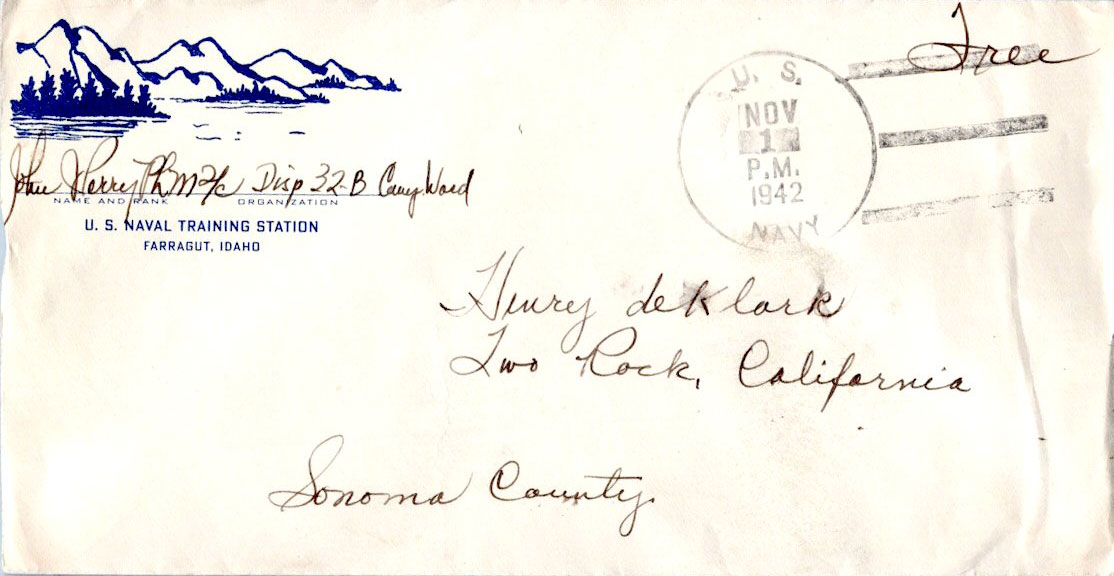 Free
U. S.
NOV
1
P.M.
1942
NAVY
John Perry PhM2/c Disp 32-B Camp Ward
NAME AND RANK ORGANIZATION
U. S. NAVAL TRAINING STATION
FARRAGUT, IDAHO
Henry deKlark
Two Rock, California
Sonoma County.